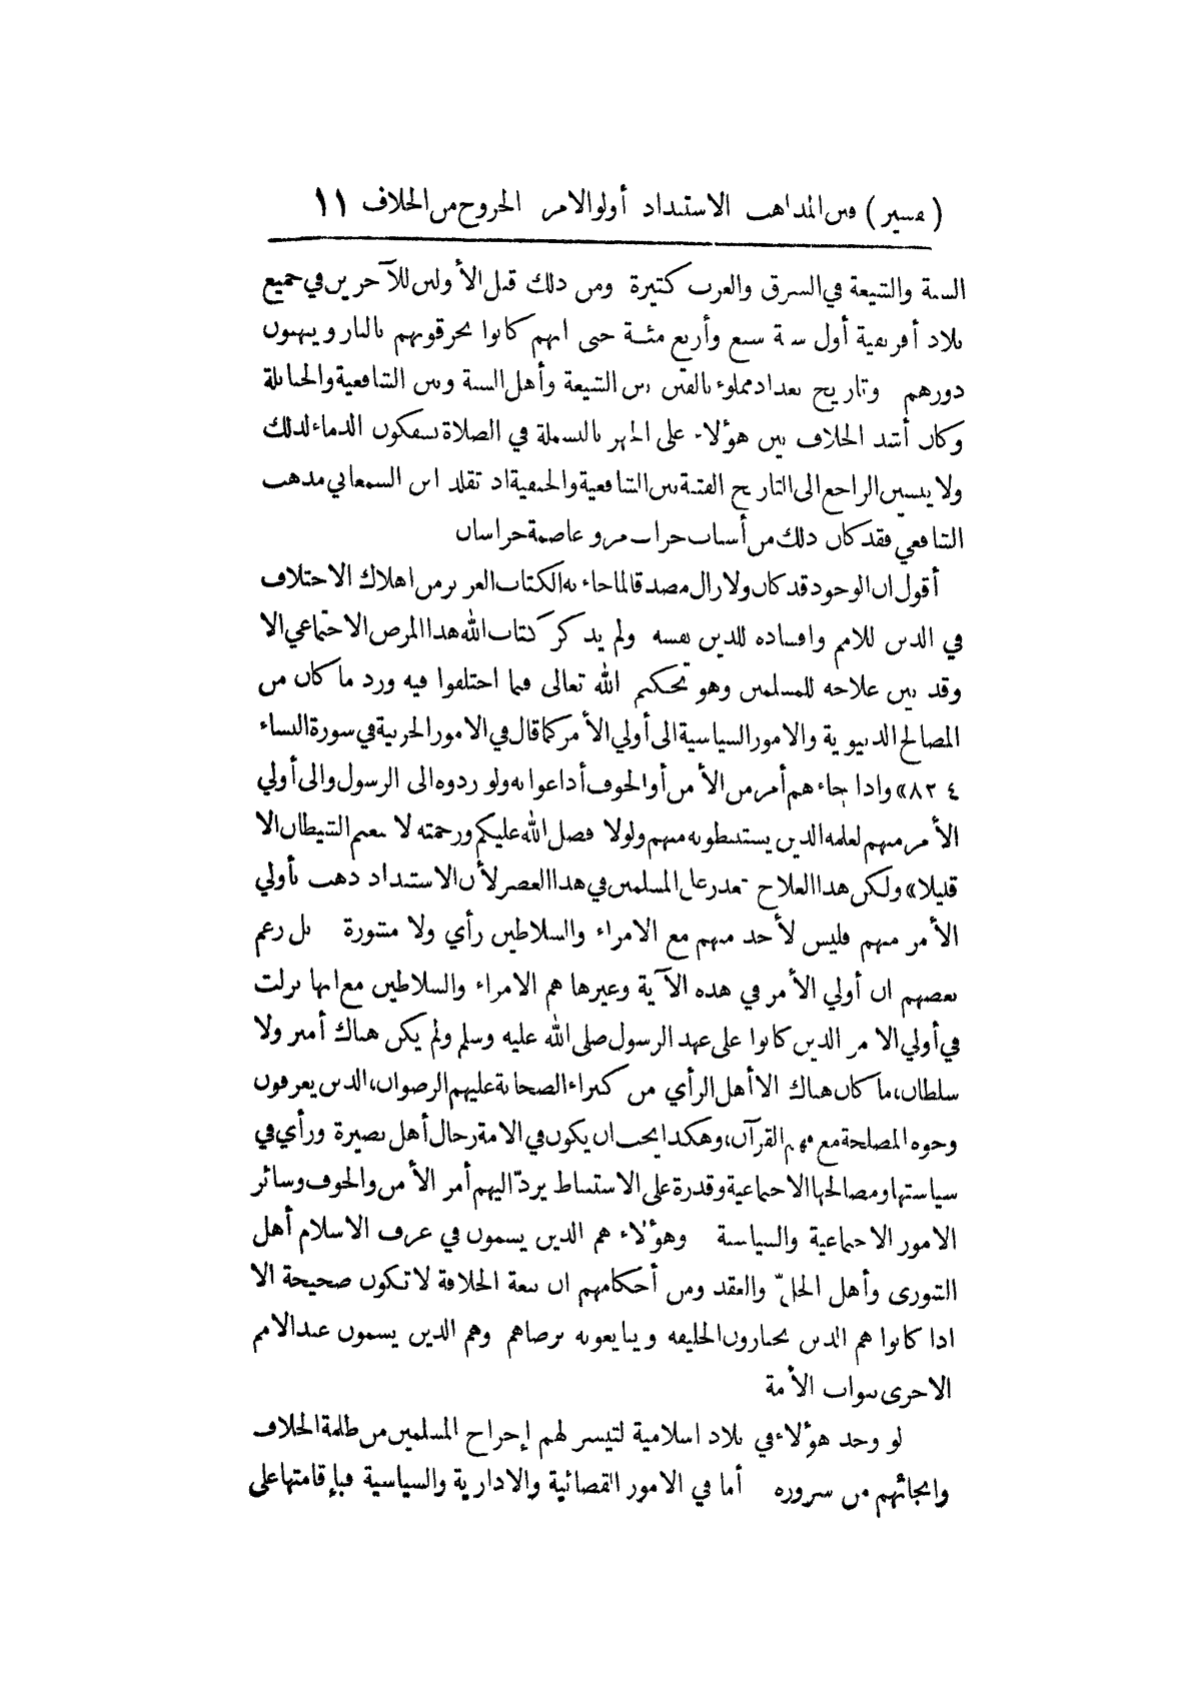 (تفسير) فتن المذاهب الاستبداد أولو الامر الخروج من الخلاف ١١
السنة والشيعة في الشرق والغرب كثيرة ومن ذلك قتل الأولين للآخرين في جميع
بلاد أفريقية أول سنة سبع وأربع مئة حتى انهم كانوا يحرقونهم بالنار وينهبون
دورهم وتاريخ بغداد مملوء بالفتن بين الشيعة وأهل السنة وبين الشافعية والحنابلة
وكان أشد الخلاف بين هؤلاء على الجهر بالبسملة في الصلاة يسفكون الدماء لذلك
ولا ينسين الراجع الى التاريخ الفتنة بين الشافعية والحنفية اذ تقلد ابن السمعاني مذهب
الشافعي فقد كان ذلك من أسباب خراب مرو عاصمة خراسان
أقول ان الوجود قد كان ولا زال مصدقا لما جاء به الكتاب العزيز من اهلاك الاختلاف
في الدين للامم وافساده للدين نفسه ولم يذكر كتاب الله هذا المرض الاجتماعي الا
وقد بين علاجه للمسلمين وهو تحكيم الله تعالى فيما اختلفوا فيه ورد ما كان من
المصالح الدنيوية والامور السياسية الى أولي الأمر كما قال في الامور الحربية في سورة النساء
٤ ٨٢» واذا جاءهم أمر من الأمن أو الخوف أذاعوا به ولو ردوه الى الرسول والى أولي
الأمر منهم لعلمه الذين يستنبطونه منهم ولولا فضل الله عليكم ورحمته لا تبعتم الشيطان الا
قليلا» ولكن هذا العلاج تعذر على المسلمين في هذا العصر لأن الاستبداد ذهب بأولي
الأمر منهم فليس لأحد منهم مع الامراء والسلاطين رأي ولا مشورة بل زعم
بعضهم ان أولي الأمر في هذه الآية وغيرها هم الامراء والسلاطين مع انها نزلت
في أولي الامر الذين كانوا على عهد الرسول صلى الله عليه وسلم ولم يكن هناك أمير ولا
سلطان، ما كان هناك الا أهل الرأي من كبراء الصحابة عليهم الرضوان، الذين يعرفون
وجوه المصلحة مع فهم القرآن، وهكذا يجب ان يكون في الامة رجال أهل بصيرة ورأي في
سياستها ومصالحها الاجتماعية وقدرة على الاستنباط يردّ اليهم أمر الأمن والخوف وسائر
الامور الاجتماعية والسياسية وهؤلاء هم الذين يسمون في عرف الاسلام أهل
الشورى وأهل الحلّ والعقد ومن أحكامهم ان بيعة الخلافة لا تكون صحيحة الا
اذا كانوا هم الذين يختارون الخليفه ويبايعونه برضاهم وهم الذين يسمون عند الامم
الاخرى بنواب الأمة
لو وجد هؤلاء في بلاد اسلامية لتيسر لهم إخراج المسلمين من ظلمة الخلاف
وانجائهم من شروره أما في الامور القضائية والادارية والسياسية فبإقامتها على